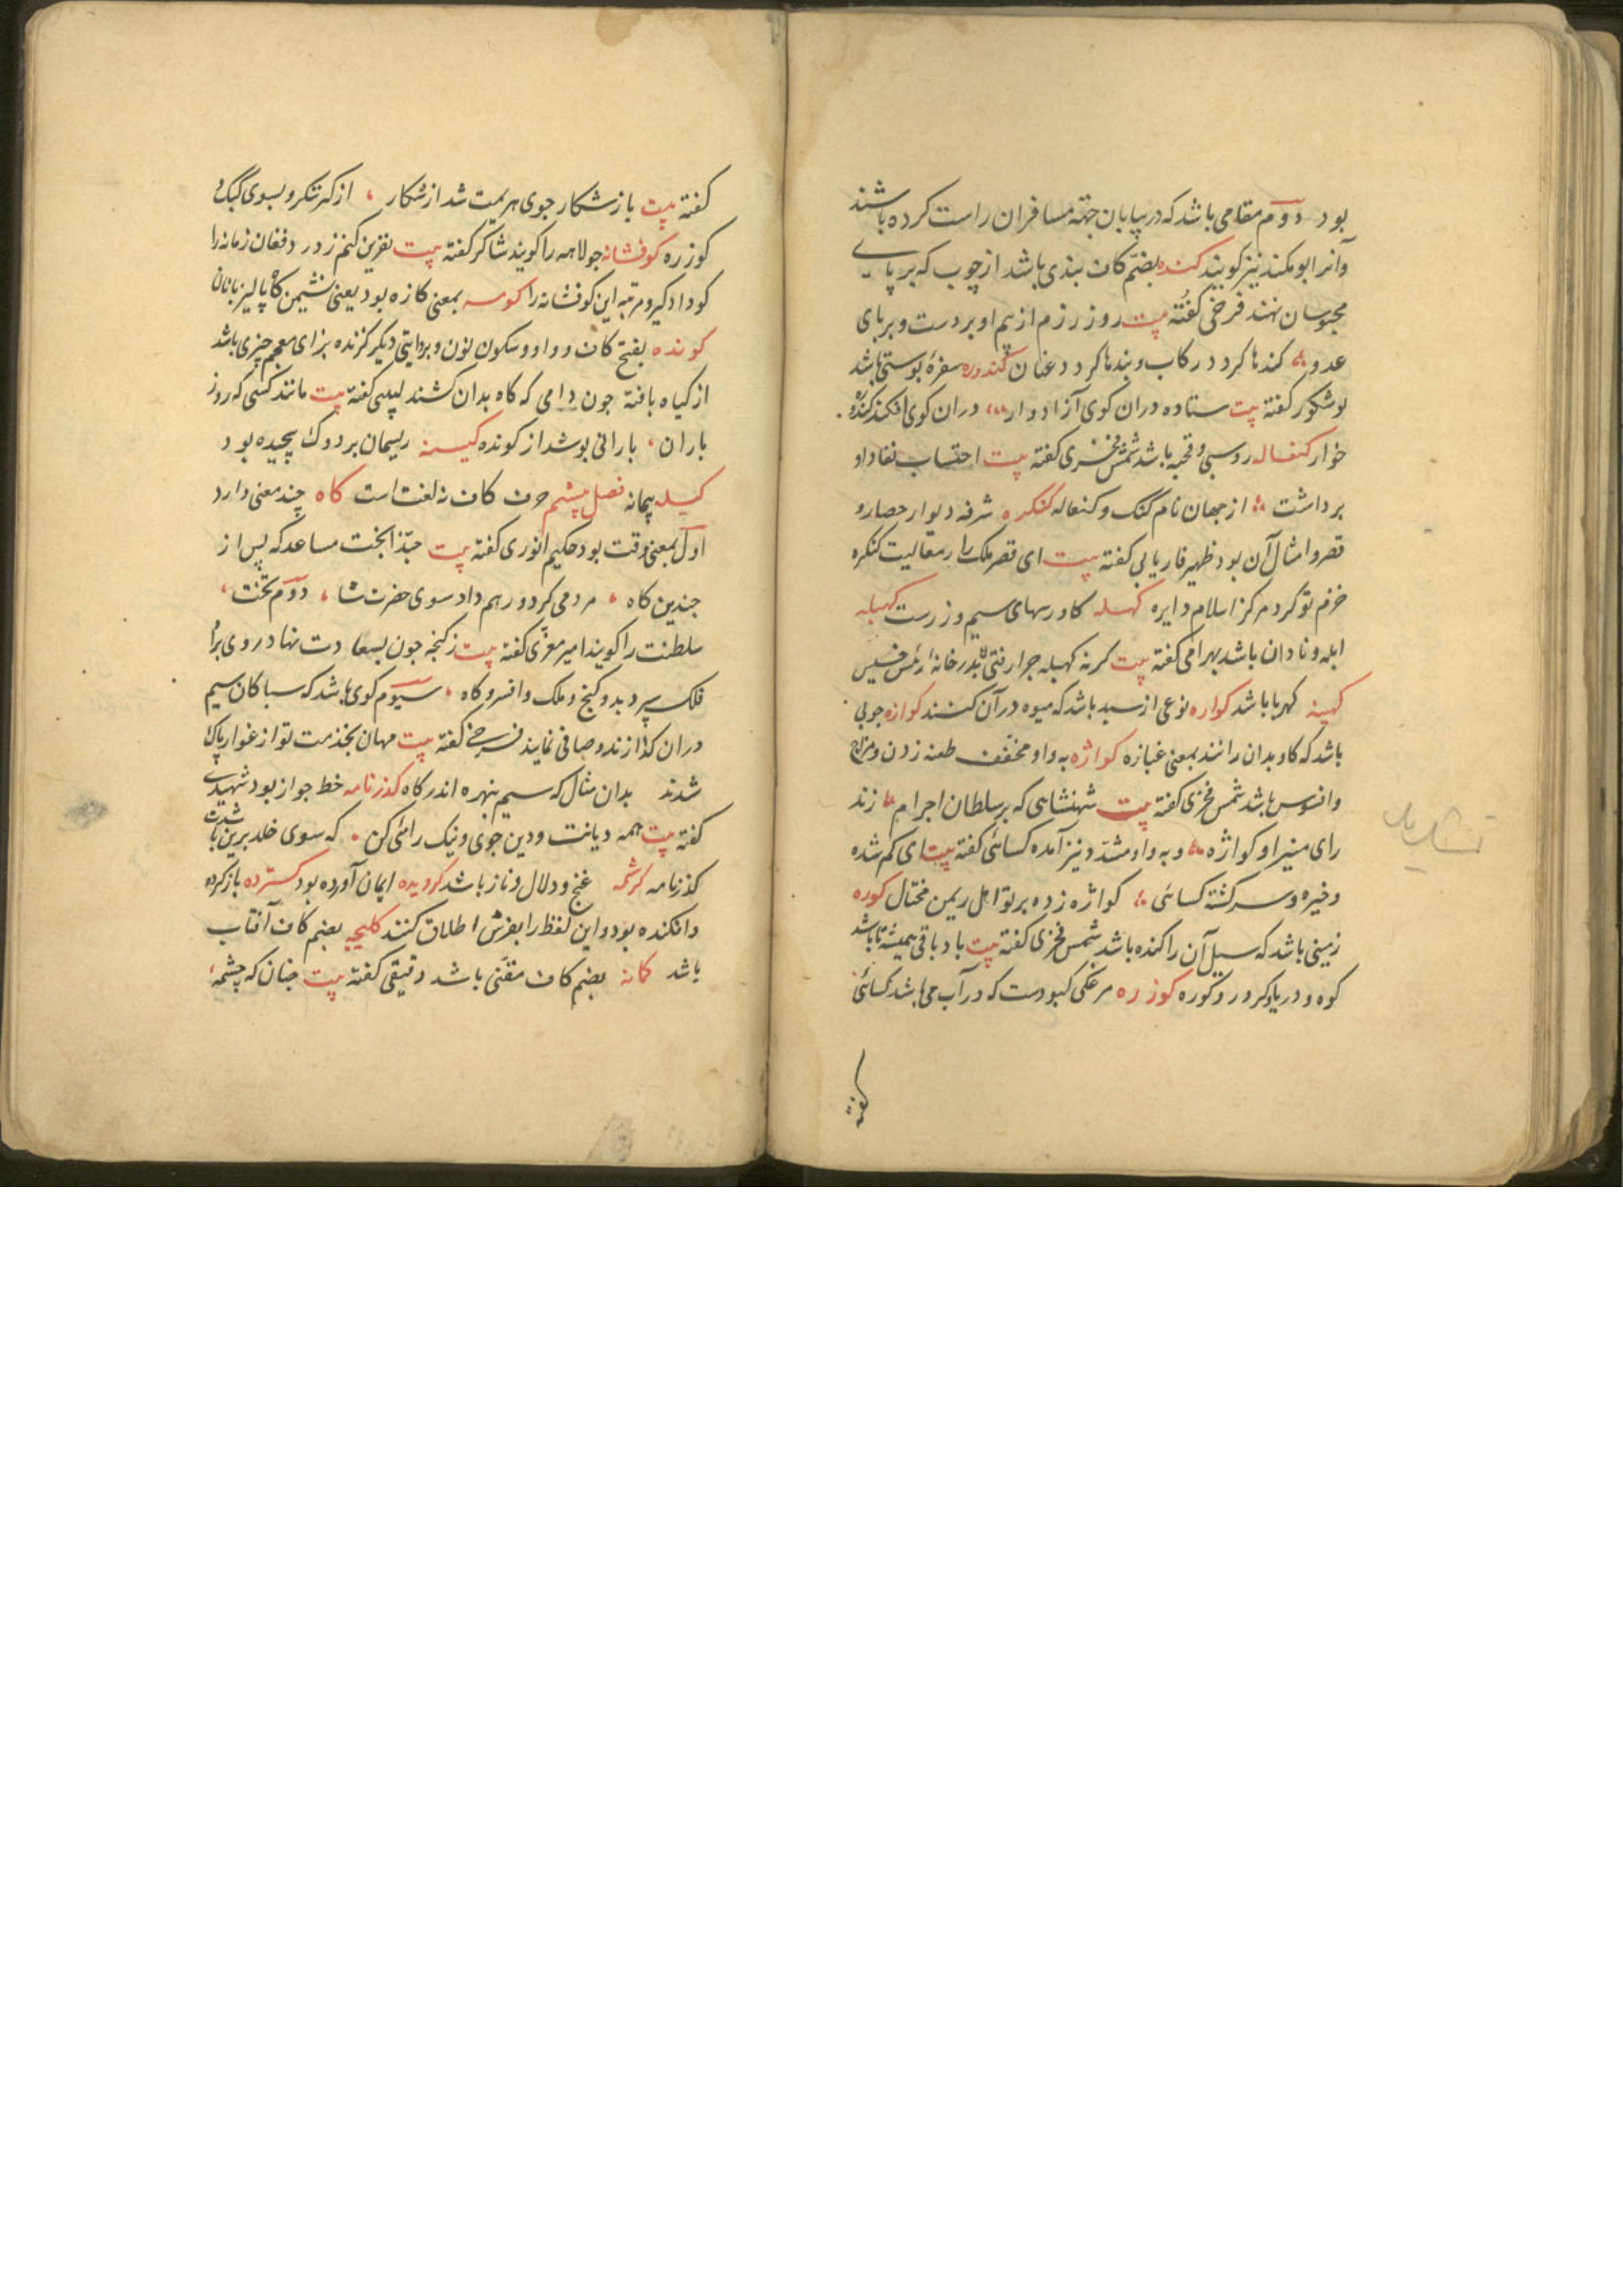 بود دوّم مقامی باشد که در بیابان جهة مسافران راست کرده باشند
وآنرا بومکند نیز کویند کنده بضمّ کاف بندی باشد از چوب که بر پای
محبوسان نهند فرخی کفته بیت روز رزم از بیم او بر دست و بر بای
عدو کندها کردد رکاب و بندها کردد عنان کندوره سفرهٔ بوستی باشد
بوشکور کفته بیت ستاده دران کوی آزادوار دران کوی افکند کندوره
خوار کنغاله روسبی وقحبه باشد شمس فخری کفته بیت احتساب نفاد او
برداشت از جهان نام کنک و کنغاله کنکره شرفه دیوار حصار و
قصر و امثال آن بود ظهیر فاریابی کفته بیت ای قصر ملک را ز معالیت کنکره
خرم تو کرد مرکز اسلام دایره کهله کاورسهای سیم وزرست کهبله
ابله ونادان باشد بهرامی کفته بیت کر نه کهبله چرا رفتی بدر خانهٔ رئیس خسیس
کهینه کهربا باشد کواره نوعی از سبد باشد که میوه در آن کنند کوازه جوبی
باشد که کاو بدان رانند بمعنی غبازه کواژه به واو مخفّف طعنه زدن ومزاح
وافسوس باشد شمس فخری کفته بیت شهنشاهی که بر سلطان اجرام زند
رای منیر او کواژه وبه واو مشدّد نیز آمده کسائی کفته بیت ای کم شده
وخیره وسرکشته کسائی کواژه زده بر تو اهل ریمن محتال کوره
زمینی باشد که سیل آن را کنده باشد شمس فخری کفته بیت باد باقی همیشه تا باشد
کوه و دریا وکردر وکوره کوزره مرغکی کبودست که در آب می باشد کسائی
کفته
کفته بیت باز شکار جوی هریمت شد از شکار از کبر ننکرد بسوی کبک و
کوزره کوفشانه جولاهه را کویند شاکر کفته بیت نفرین کنم ز درد فغان زمانه را
کو داد کبر و مرتبه این کوفشانه را کومه بمعنی کازه بود یعنی نشیمن کاه پالیزبانان
کونده بفتح کاف و واو وسکون نون وبروایتی دیکر کزنده بزای معجم چیزی باشد
از کیاه بافته جون دامی که کاه بدان کشند لبیبی کفته بیت مانند کسی که روز
باران بارانی بوشد از کونده کیسنه ریسمان بر دوک بیچیده بود
کیله پیمانه فصل بیشم حرف کاف نه لغت است کاه چند معنی دارد
اوّل بمعنی وقت بود حکیم انوری کفته بیت حبّذا بخت مساعد که پس از
جندین کاه مردمی کرد ورهم داد سوی حضرت شاه دوّم تخت
سلطنت را کویند امیر معزّی کفته بیت ز کنجه جون بسعادت نهاد روی براه
فلک سپرد بدو کنج وملک وافسر وکاه سیّوم کوی باشد که سباکان سیم
دران کدازند و صافی نمایند فرخی کفته بیت مهان بخدمت تو از عوار پاک
شدند بدان مثال که سیم نبهره اندر کاه کذرنامه خط جواز بود شهیدی
کفته بیت همه دیانت ودین جوی ونیک رائی کن که سوی خلد برین باشدت
کذرنامه کرشمه غنج ودلال وناز باشد کرویده ایمان آورده بود کسترده باز کرده
وافکنده بود واین لفظ را بفرش اطلاق کنند کلیچه بضم کاف آفتاب
باشد کمانه بضم کاف مقنّی باشد دقیقی کفته بیت جنان که چشمهٔ